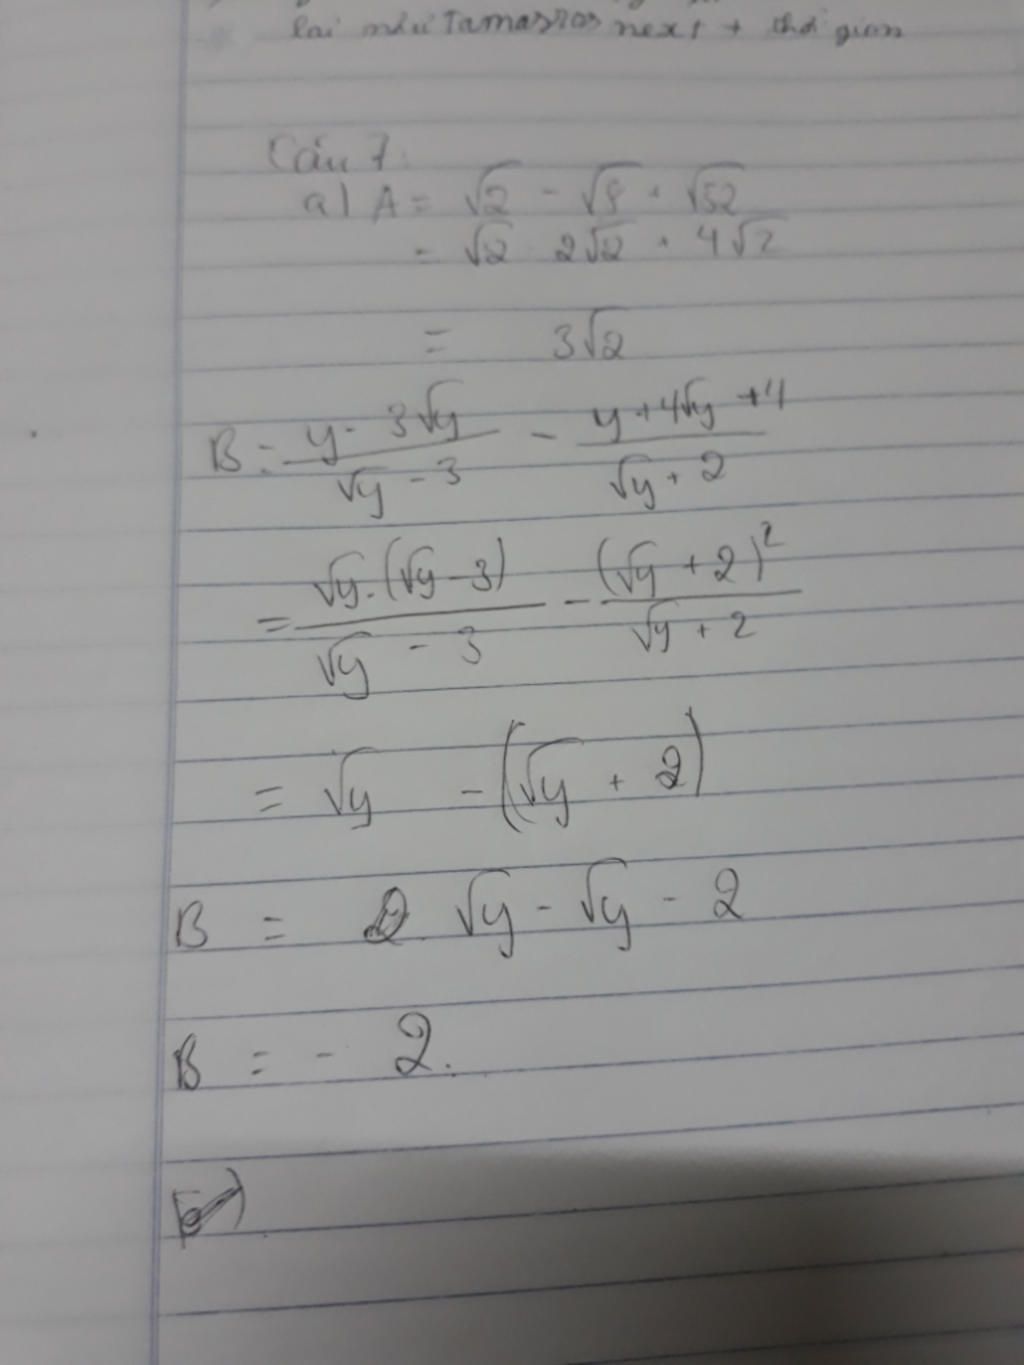 lại như Tamastos next + thời gian
Câu 7:
a) A = √2 - √8 + √32
= √2 2√2 + 4√2
= 3√2
B = (y - 3√y)/(√y - 3) - (y + 4√y + 4)/(√y + 2)
= (√y.(√y - 3))/(√y - 3) - (√y + 2)²/(√y + 2)
= √y - (√y + 2)
B = √y - √y - 2
B = - 2.